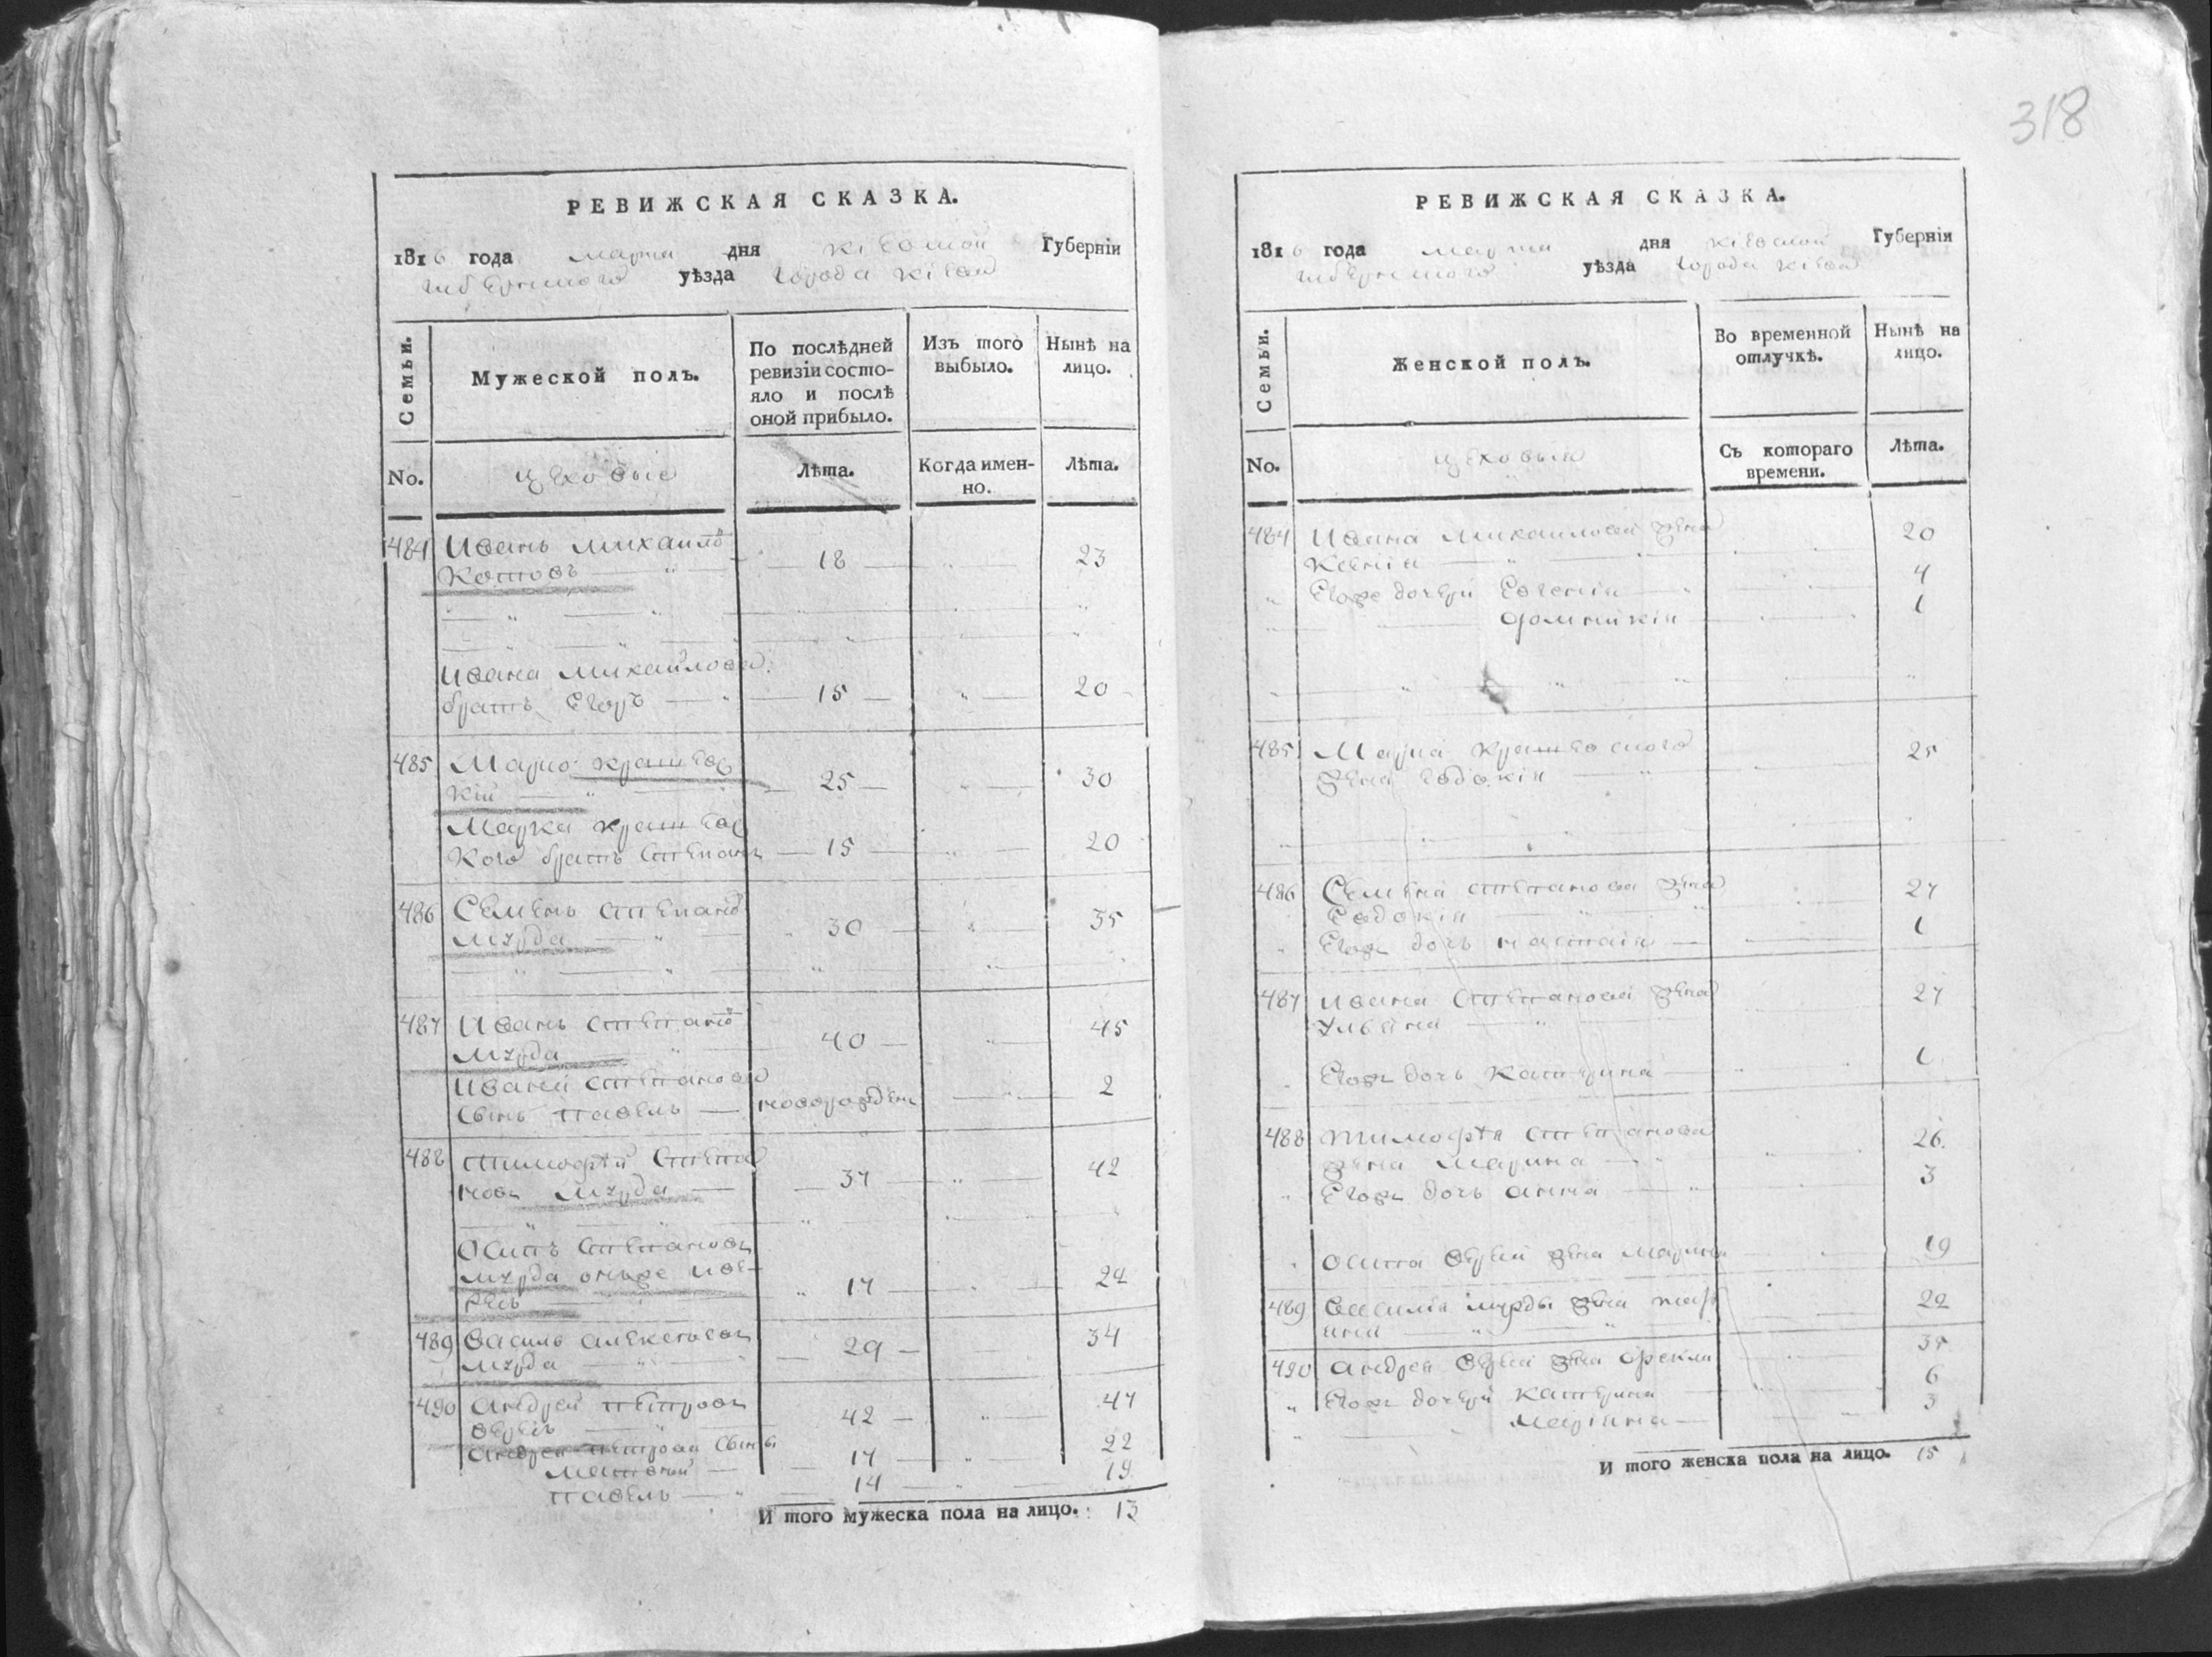 318
РЕВИЖСКАЯ СКАЗКА.
1816 года марта дня киевской Губернiи
уѣзда города киева
Семьи.
Мужеской полъ.
По послѣдней
ревизiи состо-
яло и послѣ
оной прибыло.
Изъ того
выбыло.
Нынѣ на
лицо.
No.
цеховые
Лѣта.
Когда имен-
но.
Лѣта.
484 Иванъ михаило
Котовъ 18 23
Ивана михайлова
братъ Егоръ 15 20
485 Марко
кiй 25 30
Марка
кого братъ степанъ 15 20
486 Семенъ степано
мурда 30 35
487 Иванъ степано
мурда 40 45
Ивана степанова
сынъ павелъ новорожден 2
488 тимофѣй степа
новъ мурда 37 42
Осипъ степановъ
мурда онъже
17 22
489 василь алексеевъ
мурда 29 34
490 андрей петровъ
42 47
андрея петрова сыны
матвей 17 22
павелъ 14 19
И того мужеска пола на лицо. 13
РЕВИЖСКАЯ СКАЗКА.
1816 года марта дня киевской Губернiя
уѣзда города киева
Семьи.
Женской полъ.
Во временной
отлучкѣ.
Нынѣ на
лицо.
No.
цеховые
Съ котораго
времени.
Лѣта.
484 Ивана михаилова жена
20
Егоже дочери Евгенiя 4
1
485 Марка
жена евдокiя 25
486 Семена степанова жена 27
Евдокiя
Егожъ дочь настасiя 1
487 ивана степанова жена 27
ульяна
Егожъ дочь катерина 1
488 тимофѣя степанова 26
жена марина
Егожъ дочь анна 3
осипа жена марина 19
489 василiя мурды жена 22
490 андрея жена фекла 35
Егожъ дочери катерина 6
марiянна 3
И того женска пола на лицо. 15